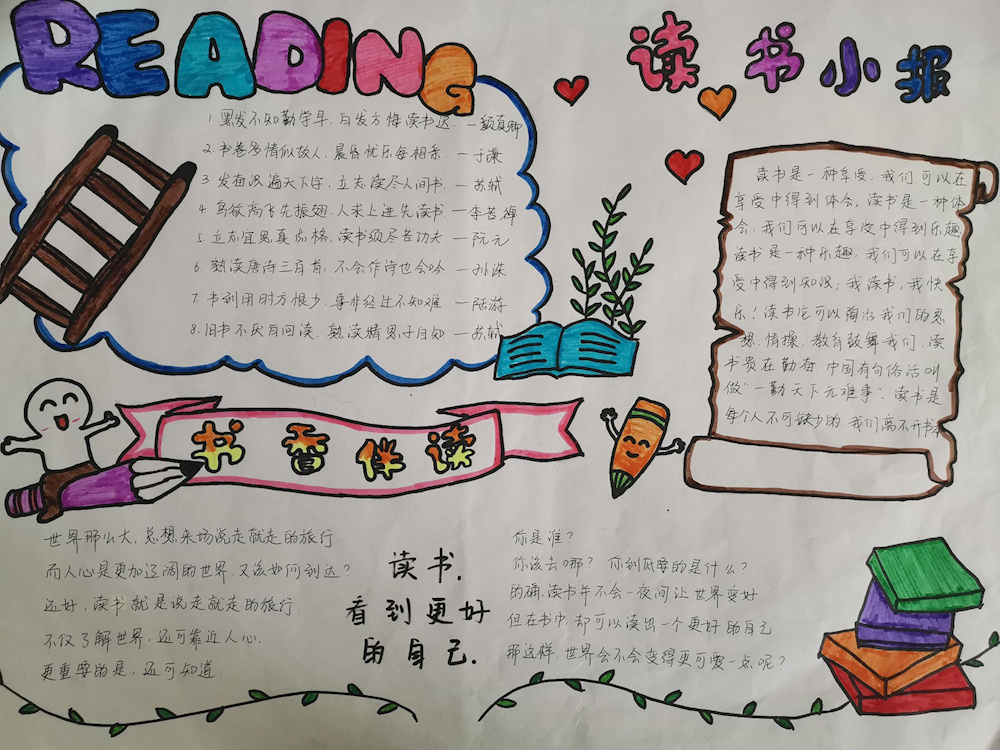 READING
读书小报
1. 黑发不知勤学早，白发方悔读书迟 —颜真卿
2. 书卷多情似故人，晨昏忧乐每相亲 —于谦
3 发奋识遍天下字，立志读尽人间书 —苏轼
4. 鸟欲高飞先振翅，人求上进先读书 —李苦禅
5. 立志宜思真品格，读书须尽苦功夫 —阮元
6. 熟读唐诗三百首，不会作诗也会吟 —孙洙
7. 书到用时方恨少，事非经过不知难 —陆游
8. 旧书不厌百回读，熟读精思子自知 —苏轼
读书是一种享受，我们可以在
享受中得到体会，读书是一种体
会，我们可以在享受中得到乐趣
读书是一种乐趣，我们可以在享
受中得到知识；我读书，我快
乐！读书它可以陶冶我们的思
想，情操，教育鼓舞我们，读
书贵在勤奋 中国有句俗话叫
做“一勤天下无难事”. 读书是
每个人不可缺少的 我们离不开书本
书香伴读
世界那么大，总想来场说走就走的旅行
而人心是更加辽阔的世界，又该如何到达？
还好，读书就是说走就走的旅行
不仅了解世界，还可靠近人心，
更重要的是，还可知道
读书，
看到更好
的自己.
你是谁？
你该去哪？ 你到底要的是什么？
的确，读书并不会一夜间让世界变好
但在书中，却可以读出一个更好的自己
那这样，世界会不会变得更可爱一点呢？